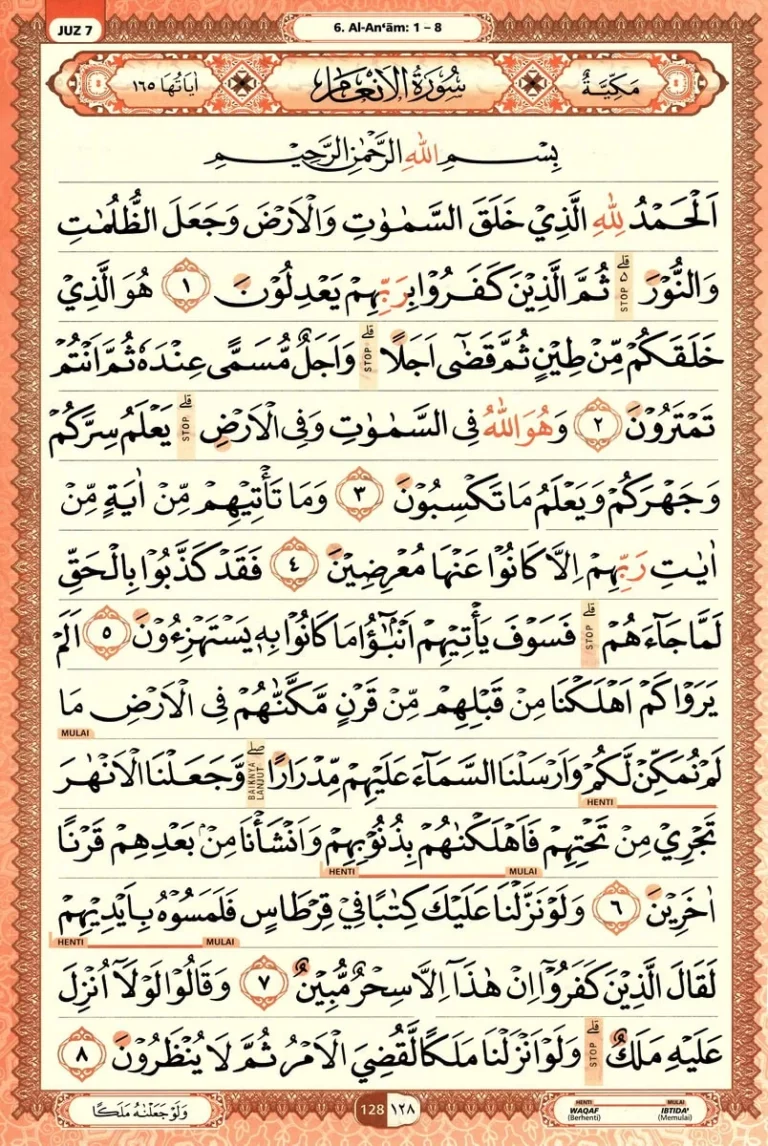 JUZ 7
6. Al-An‘ām: 1 – 8
مَكِّيَّةٌ سُوْرَةُ الْاَنْعَامِ اٰيَاتُهَا ١٦٥
بِسْمِ اللّٰهِ الرَّحْمٰنِ الرَّحِيْمِ
اَلْحَمْدُ لِلّٰهِ الَّذِيْ خَلَقَ السَّمٰوٰتِ وَالْاَرْضَ وَجَعَلَ الظُّلُمٰتِ
وَالنُّوْرَ ۗ ە STOP ثُمَّ الَّذِيْنَ كَفَرُوْا بِرَبِّهِمْ يَعْدِلُوْنَ ١ هُوَ الَّذِيْ
خَلَقَكُمْ مِّنْ طِيْنٍ ثُمَّ قَضٰٓى اَجَلًا ۗ STOP وَاَجَلٌ مُّسَمًّى عِنْدَهٗ ثُمَّ اَنْتُمْ
تَمْتَرُوْنَ ٢ وَهُوَ اللّٰهُ فِى السَّمٰوٰتِ وَفِى الْاَرْضِ ۗ STOP يَعْلَمُ سِرَّكُمْ
وَجَهْرَكُمْ وَيَعْلَمُ مَا تَكْسِبُوْنَ ٣ وَمَا تَأْتِيْهِمْ مِّنْ اٰيَةٍ مِّنْ
اٰيٰتِ رَبِّهِمْ اِلَّا كَانُوْا عَنْهَا مُعْرِضِيْنَ ٤ فَقَدْ كَذَّبُوْا بِالْحَقِّ
لَمَّا جَاۤءَهُمْ ۗ STOP فَسَوْفَ يَأْتِيْهِمْ اَنْۢبٰۤـؤُا مَا كَانُوْا بِهٖ يَسْتَهْزِءُوْنَ ٥ اَلَمْ
يَرَوْا كَمْ اَهْلَكْنَا مِنْ قَبْلِهِمْ مِّنْ قَرْنٍ مَّكَّنّٰهُمْ فِى الْاَرْضِ مَا
MULAI
لَمْ نُمَكِّنْ لَّكُمْ وَاَرْسَلْنَا السَّمَاۤءَ عَلَيْهِمْ مِّدْرَارًا ۖ BAIKNYA LANJUT وَّجَعَلْنَا الْاَنْهٰرَ
HENTI
تَجْرِيْ مِنْ تَحْتِهِمْ فَاَهْلَكْنٰهُمْ بِذُنُوْبِهِمْ وَاَنْشَأْنَا مِنْۢ بَعْدِهِمْ قَرْنًا
MULAI HENTI
اٰخَرِيْنَ ٦ وَلَوْ نَزَّلْنَا عَلَيْكَ كِتٰبًا فِيْ قِرْطَاسٍ فَلَمَسُوْهُ بِاَيْدِيْهِمْ
MULAI HENTI
لَقَالَ الَّذِيْنَ كَفَرُوْٓا اِنْ هٰذَآ اِلَّا سِحْرٌ مُّبِيْنٌ ٧ وَقَالُوْا لَوْلَآ اُنْزِلَ
عَلَيْهِ مَلَكٌ ۗ STOP وَلَوْ اَنْزَلْنَا مَلَكًا لَّقُضِيَ الْاَمْرُ ثُمَّ لَا يُنْظَرُوْنَ ٨
وَلَوْ جَعَلْنٰهُ مَلَكًا
128 ١٢٨
HENTI MULAI
WAQAF IBTIDA'
(Berhenti) (Memulai)